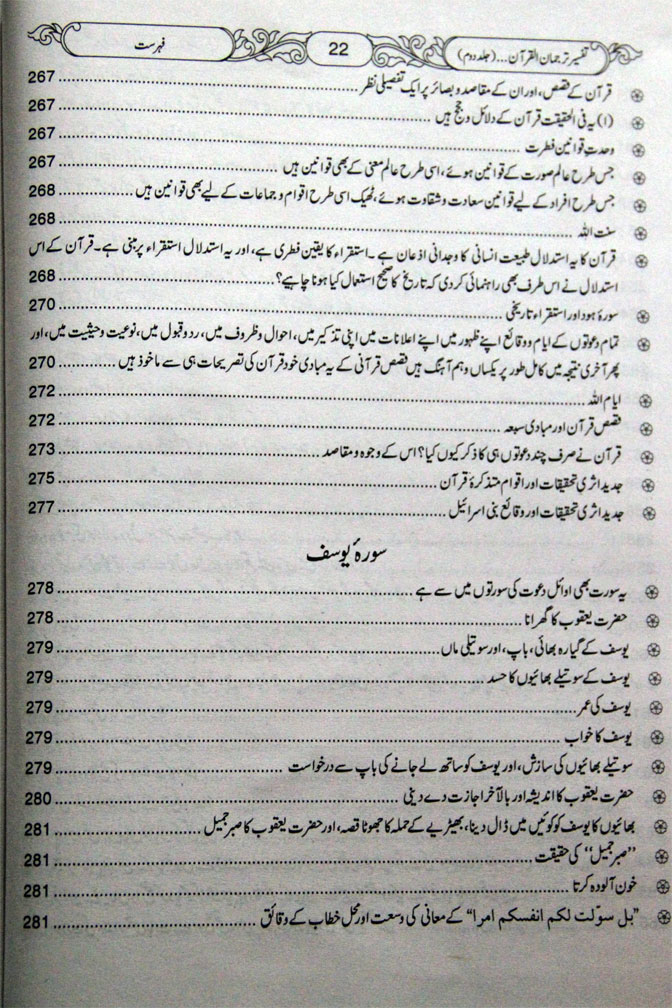 تفسیر ترجمان القرآن...(جلد دوم) 22 فہرست
قرآن کے قصص، اور ان کے مقاصد و بصائر پر ایک تفصیلی نظر 267
(۱) یہ فی الحقیقت قرآن کے دلائل و حجج ہیں 267
وحدتِ قوانین فطرت 267
جس طرح عالم صورت کے قوانین ہوئے، اسی طرح عالم معنی کے بھی قوانین ہیں 267
جس طرح افراد کے لیے قوانین سعادت و شقاوت ہوئے، ٹھیک اسی طرح اقوام و جماعات کے لیے بھی قوانین ہیں 268
سنت اللہ 268
قرآن کا یہ استدلال طبیعت انسانی کا وجدانی اذعان ہے۔ استقراء کا یقین فطری ہے، اور یہ استدلال استقراء پر مبنی ہے۔ قرآن کے اس
استدلال نے اس طرف بھی راہنمائی کر دی کہ تاریخ کا صحیح استعمال کیا ہونا چاہیے؟ 268
سورۂ ہود اور استقراء تاریخی 270
تمام دعوتوں کے ایام و وقائع اپنے ظہور میں اپنے اعلانات میں اپنی تذکیر میں، احوال و ظروف میں، رد و قبول میں، نوعیت و حیثیت میں، اور
پھر آخری نتیجہ میں کامل طور پر یکساں و ہم آہنگ ہیں قصص قرآنی کے یہ مبادی خود قرآن کی تصریحات ہی سے ماخوذ ہیں 270
ایام اللہ 272
قصص قرآن اور مبادی سبعہ 272
قرآن نے صرف چند دعوتوں ہی کا ذکر کیوں کیا؟ اس کے وجوہ و مقاصد 273
جدید اثری تحقیقات اور اقوام متذکرۂ قرآن 275
جدید اثری تحقیقات اور وقائع بنی اسرائیل 277
سورۂ یوسف
یہ سورت بھی اوائل دعوت کی سورتوں میں سے ہے 278
حضرت یعقوب کا گھرانا 278
یوسف کے گیارہ بھائی، باپ، اور سوتیلی ماں 279
یوسف کے سوتیلے بھائیوں کا حسد 279
یوسف کی عمر 279
یوسف کا خواب 279
سوتیلے بھائیوں کی سازش، اور یوسف کو ساتھ لے جانے کی باپ سے درخواست 279
حضرت یعقوب کا اندیشہ اور بالآخر اجازت دے دینی 280
بھائیوں کا یوسف کو کوئیں میں ڈال دینا، بھیڑیے کے حملہ کا جھوٹا قصہ، اور حضرت یعقوب کا صبر جمیل 281
”صبر جمیل“ کی حقیقت 281
خون آلودہ کرتا 281
”بل سوّلت لکم انفسکم امرا“ کے معانی کی وسعت اور محل خطاب کے دقائق 281